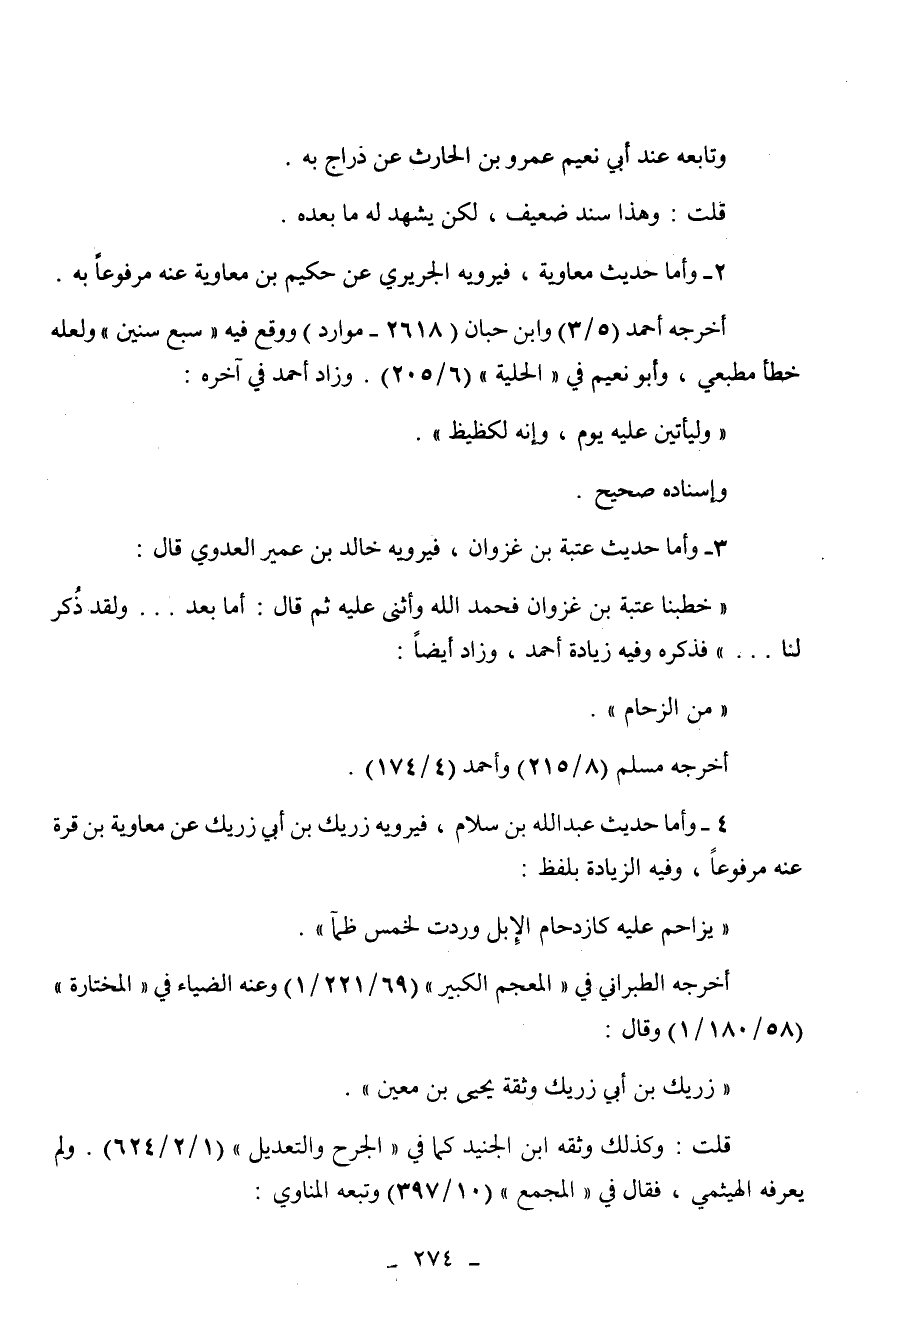 وتابعه عند أبي نعيم عمرو بن الحارث عن ذراج به .
قلت : وهذا سند ضعيف ، لكن يشهد له ما بعده .
٢ـ وأما حديث معاوية ، فيرويه الجريري عن حكيم بن معاوية عنه مرفوعاً به .
أخرجه أحمد (٣/٥) وابن حبان ( ٢٦١٨ ـ موارد ) ووقع فيه « سبع سنين » ولعله
خطأ مطبعي ، وأبو نعيم في « الحلية » (٢٠٥/٦) . وزاد أحمد في آخره :
« وليأتين عليه يوم ، وإنه لكظيظ » .
وإسناده صحيح .
٣ـ وأما حديث عتبة بن غزوان ، فيرويه خالد بن عمير العدوي قال :
« خطبنا عتبة بن غزوان فحمد الله وأثنى عليه ثم قال : أما بعد . . . ولقد ذُكر
لنا . . . » فذكره وفيه زيادة أحمد ، وزاد أيضاً :
« من الزحام » .
أخرجه مسلم (٢١٥/٨) وأحمد (١٧٤/٤) .
٤ ـ وأما حديث عبدالله بن سلام ، فيرويه زريك بن أبي زريك عن معاوية بن قرة
عنه مرفوعاً ، وفيه الزيادة بلفظ :
« يزاحم عليه كازدحام الإبل وردت لخمس ظمآ » .
أخرجه الطبراني في « المعجم الكبير » (١/٢٢١/٦٩) وعنه الضياء في « المختارة »
(١/١٨٠/٥٨) وقال :
« زريك بن أبي زريك وثقة يحيى بن معين » .
قلت : وكذلك وثقه ابن الجنيد كما في « الجرح والتعديل » (٦٢٤/٢/١) . ولم
يعرفه الهيثمي ، فقال في « المجمع » (٣٩٧/١٠) وتبعه المناوي :
ـ ٢٧٤ ـ